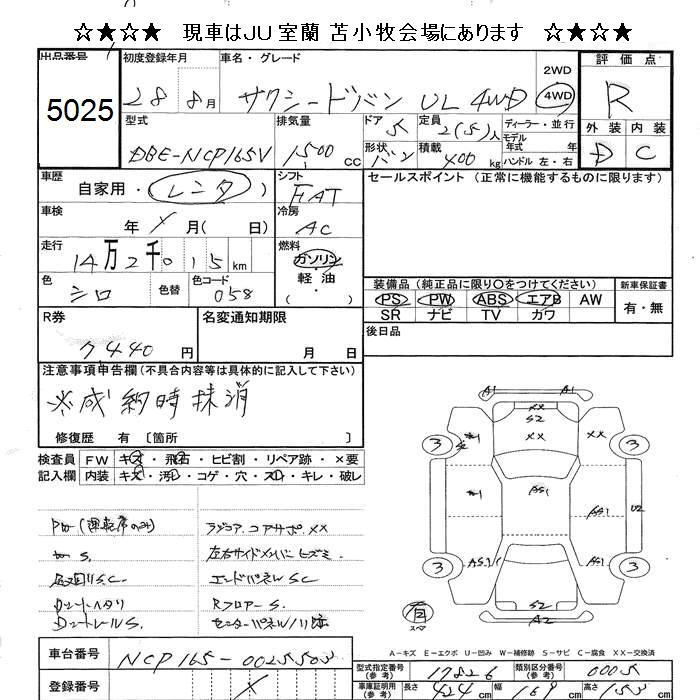 ☆★☆★ 現車はJU室蘭 苫小牧会場にあります ☆★☆★
出品番号
5025
初度登録年月
28 8月
車名・グレード
サクシードバン UL 4WD
2WD
4WD
評価点
R
外装 内装
D C
型式
DBE-NCP165V
排気量
1500 cc
ドア 5
形状 バン
定員 2(5)人
積載 400 kg
ディーラー・並行
モデル
年式 年
ハンドル 左・右
車歴
自家用・(レンタ)
シフト
FAT
セールスポイント (正常に機能するものに限ります)
車検
年 月( 日)
冷房
AC
走行
14万2千015km
燃料
ガソリン
軽油
( )
色
シロ
色替
色コード
058
装備品 (純正品に限り〇をつけてください)
PS PW ABS エアB AW
SR ナビ TV カワ
新車保証書
有・無
R券
7440円
名変通知期限
月 日
後日品
注意事項申告欄(不具合内容等は具体的に記入して下さい)
※成約時抹消
修復歴 有 〔箇所 〕
検査員
記入欄
FW キズ・飛石・ヒビ割・リペア跡・×要
内装 キズ・汚・コゲ・穴・スレ・キレ・破レ
PW(運転席のみ)
ラジコア、コアサポ、XX
左右サイドメンバーヒズミ
エンドパネルSC
RフロアーS.
A1 A1
XX
S2
XX
XX
3 3
A51
A51
U2
A51
A51
3 3
S2
A2
有
スペア
A-キズ E-エクボ U-凹み W-補修跡 S-サビ C-腐食 XX-交換済
車台番号
登録番号
型式指定番号
(参考)
17826
類別区分番号
(参考)
0005
車庫証明用
(参考)
長さ
424 cm
幅
169 cm
高さ
153 cm